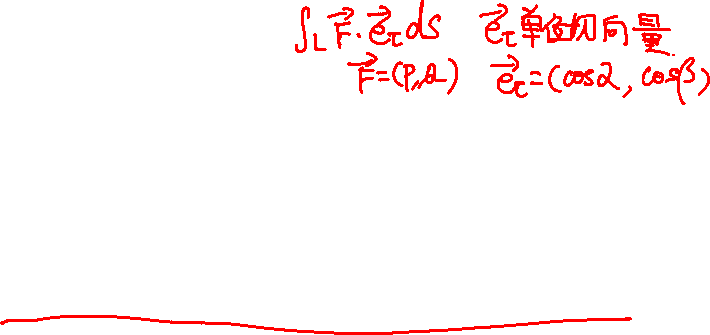 ∫_L F⃗·e⃗_τ ds e⃗_τ单位切向量
F⃗=(P,Q) e⃗_τ=(cosα, cosβ)